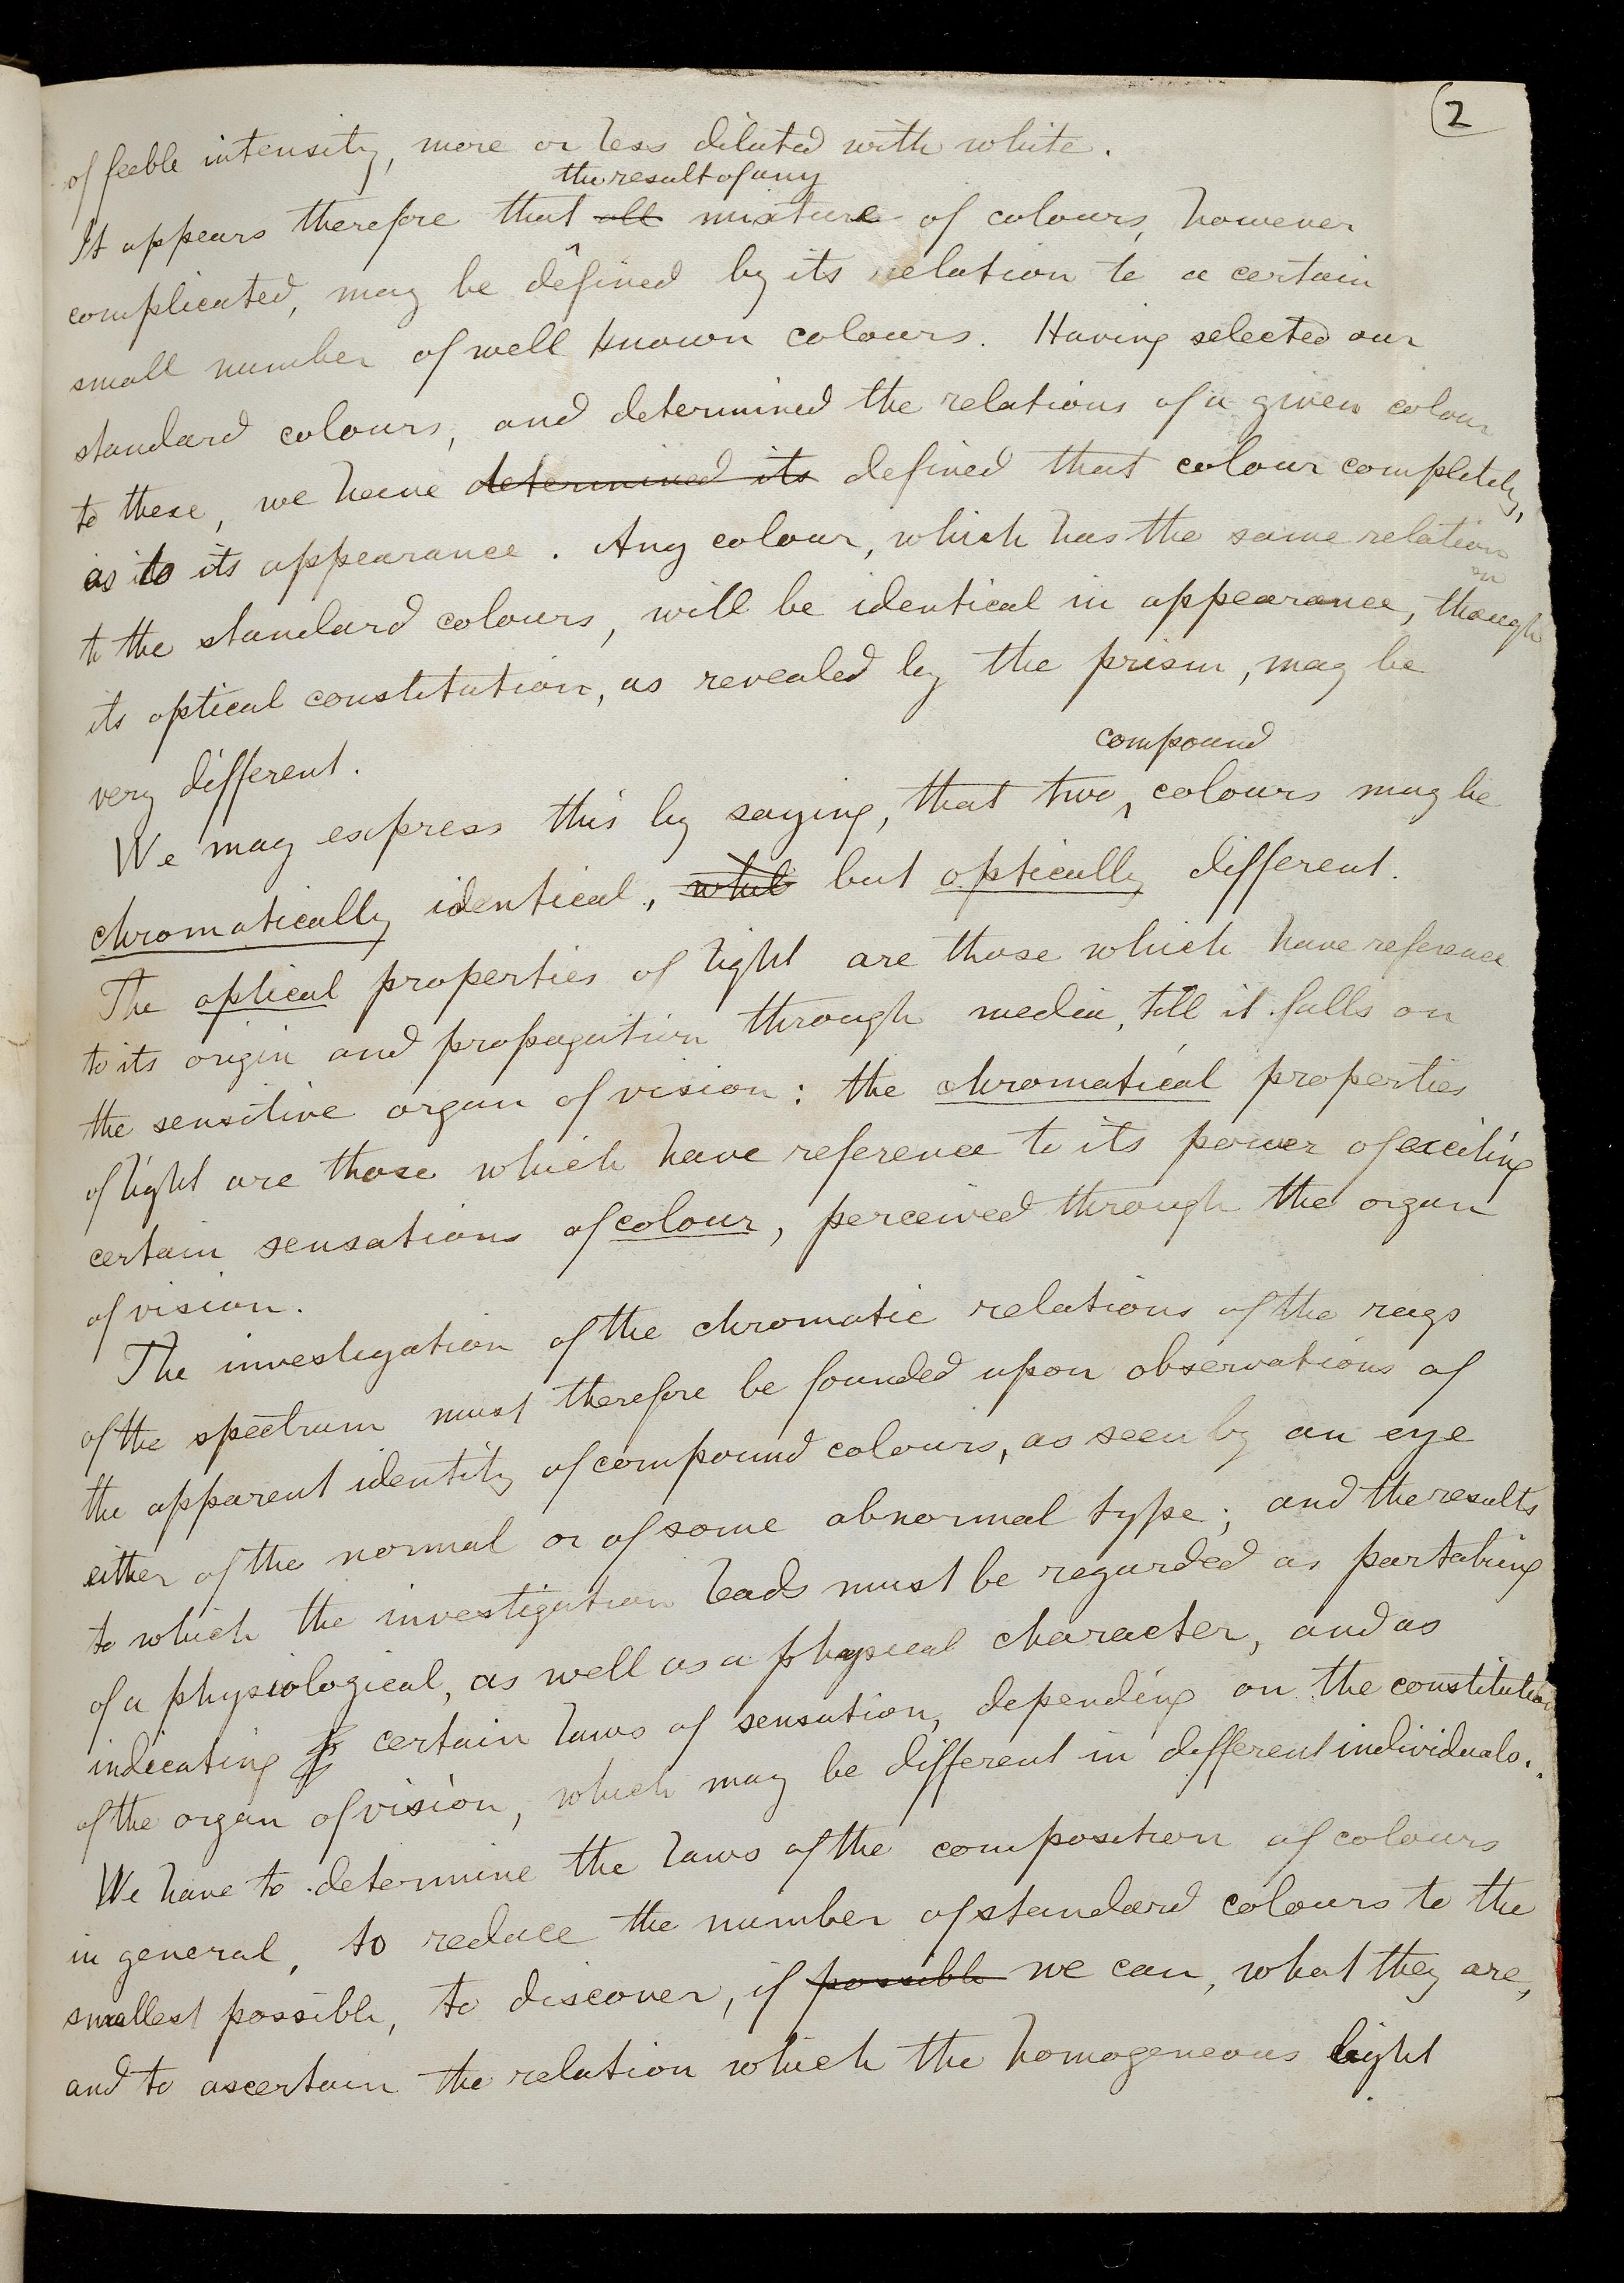 2
of feeble intensity, more or less diluted with white.
the result of any
It appears therefore that all mixture of colours, however
complicated, may be defined by its relation to a certain
small number of well known colours. Having selected our
standard colours, and determined the relations of a given colour
to these, we have determined its defined that colour completely,
as to its appearance. Any colour, which has the same relation
to the standard colours, will be identical in appearance, though
its optical constitution, as revealed by the prism, may be
very different.
compound
We may express this by saying, that two colours may be
chromatically identical, while but optically different.
The optical properties of light are those which have reference
to its origin and propagation through media, till it falls on
the sensitive organ of vision: the chromatical properties
of light are those which have reference to its power of exciting
certain sensations of colour, perceived through the organ
of vision.
The investigation of the chromatic relations of the rays
of the spectrum must therefore be founded upon observations of
the apparent identity of compound colours, as seen by an eye
either of the normal or of some abnormal type; and the results
to which the investigation leads must be regarded as partaking
of a physiological, as well as a physical character, and as
indicating certain laws of sensation, depending on the constitution
of the organ of vision, which may be different in different individuals.
We have to determine the laws of the composition of colours
in general, to reduce the number of standard colours to the
smallest possible, to discover, if possible we can, what they are,
and to ascertain the relation which the homogeneous light